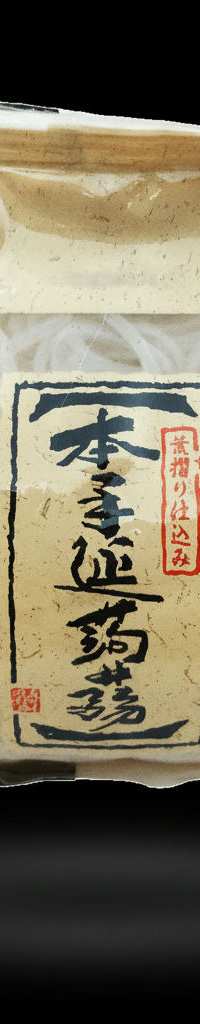 本手延蒟蒻
荒摺り仕込み